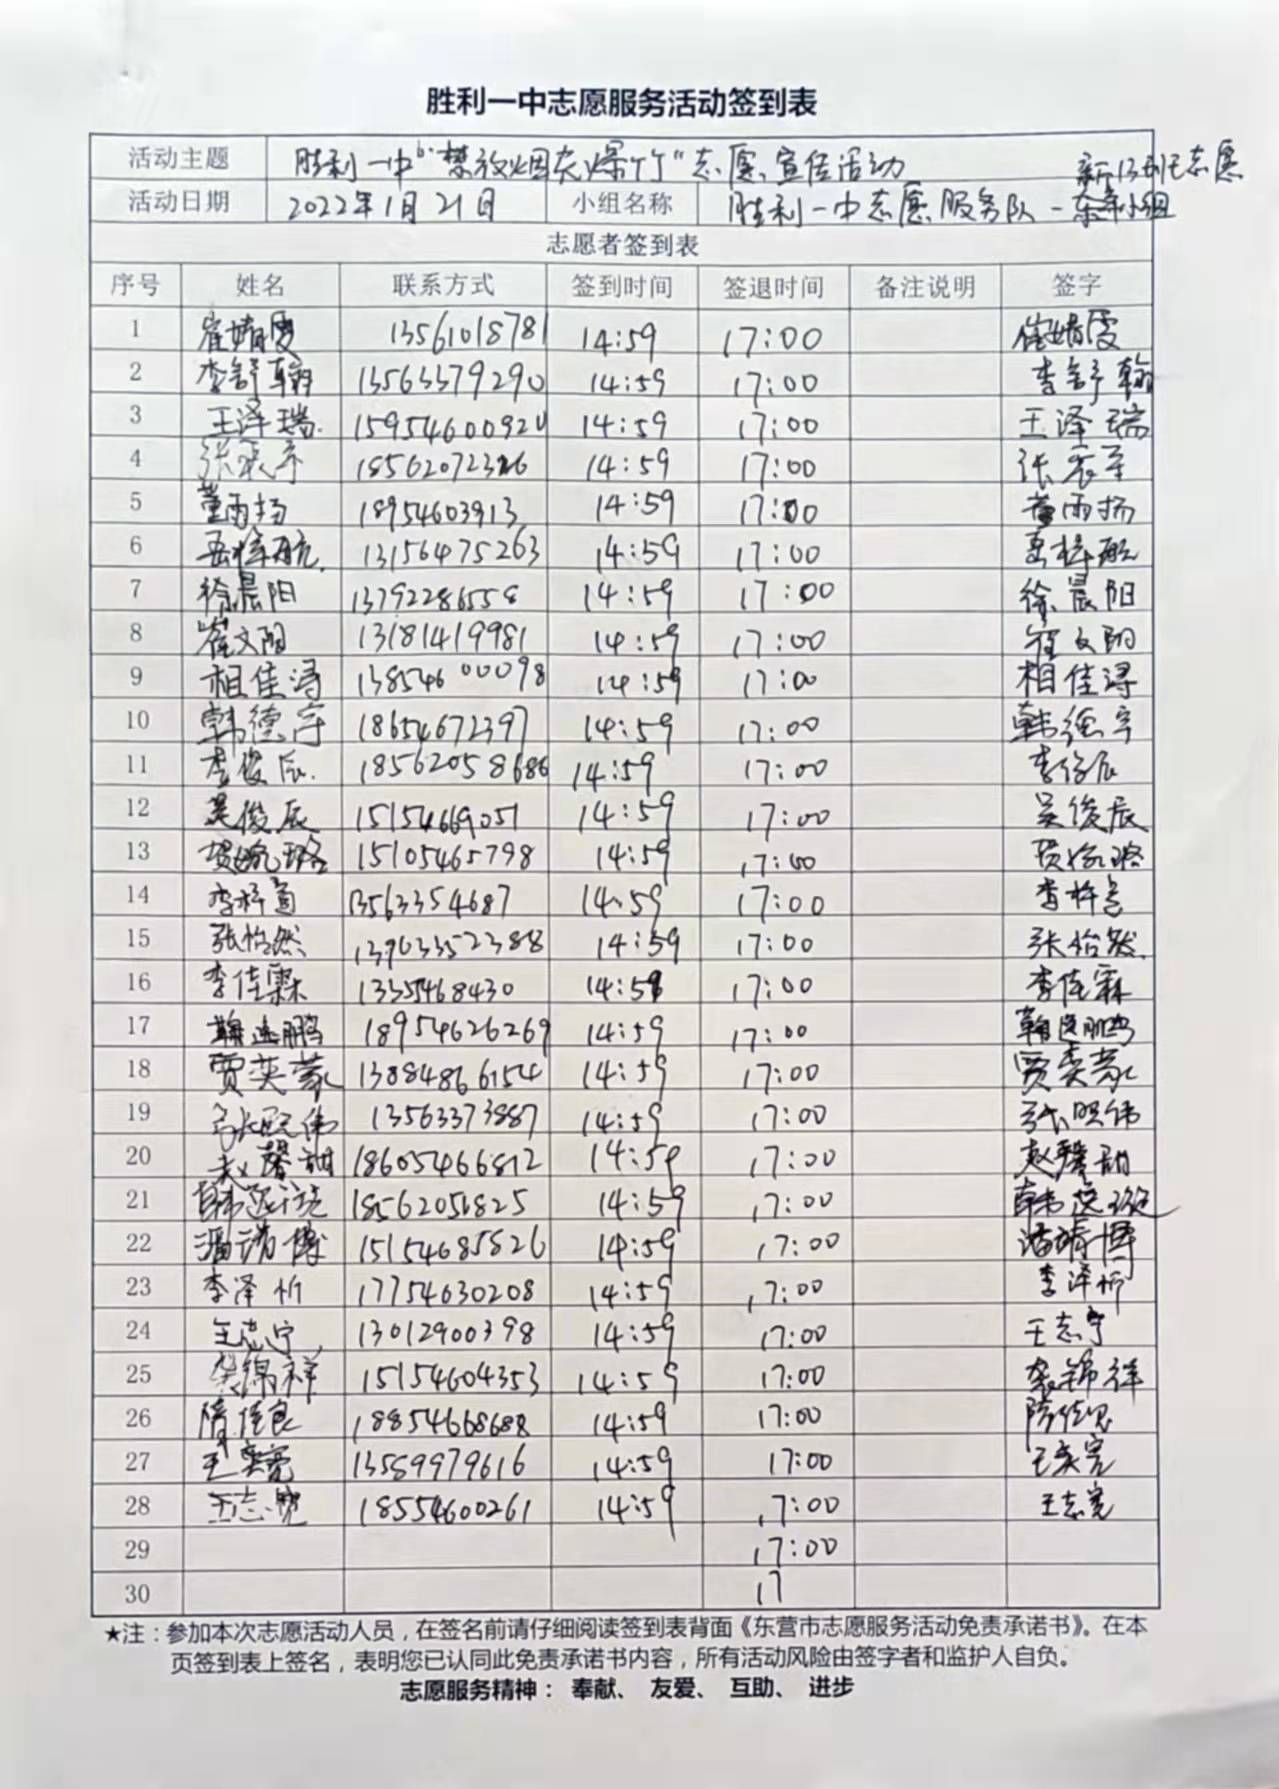 胜利一中志愿服务活动签到表
活动主题 胜利一中"禁放烟花爆竹"志愿宣传活动
活动日期 2022年1月21日 小组名称 胜利一中志愿服务队一 小组
志愿者签到表
序号 姓名 联系方式 签到时间 签退时间 备注说明 签字
1 崔婧雯 13561018781 14:59 17:00 崔婧雯
2 李舒翰 13563379290 14:59 17:00 李舒翰
3 王泽瑞 15954600920 14:59 17:00 王泽瑞
4 14:59 17:00
5 董雨扬 18954603913 14:59 17:00 董雨扬
6 岳梓航 13156475263 14:59 17:00 岳梓航
7 徐晨阳 13792286558 14:59 17:00 徐晨阳
8 崔文阳 13181419981 14:59 17:00
9 相佳浔 13854600098 14:59 17:00 相佳浔
10 韩德宇 18654672397 14:59 17:00 韩德宇
11 李俊辰 18562058686 14:59 17:00 李俊辰
12 吴俊辰 15154669051 14:59 17:00 吴俊辰
13 15105465798 14:59 17:00
14 13563354687 14:59 17:00
15 张怡然 13963352388 14:59 17:00 张怡然
16 李佳霖 1335468430 14:59 17:00 李佳霖
17 18954626269 14:59 17:00
18 贾奕蒙 13884866154 14:59 17:00 贾奕蒙
19 张熙伟 13563373887 14:59 17:00 张熙伟
20 赵馨甜 18605466812 14:59 17:00 赵馨甜
21 18562051825 14:59 17:00
22 潘靖博 15154685826 14:59 17:00 潘靖博
23 李泽忻 17754630208 14:59 17:00 李泽忻
24 王志宁 13012900398 14:59 17:00 王志宁
25 15154604353 14:59 17:00
26 隋佳良 18854668688 14:59 17:00
27 王奕亮 13589979616 14:59 17:00 王奕亮
28 18554600261 14:59 17:00
29 17:00
30 17
★注：参加本次志愿活动人员，在签名前请仔细阅读签到表背面《东营市志愿服务活动免责承诺书》。在本
页签到表上签名，表明您已认同此免责承诺书内容，所有活动风险由签字者和监护人自负。
志愿服务精神： 奉献、 友爱、 互助、 进步